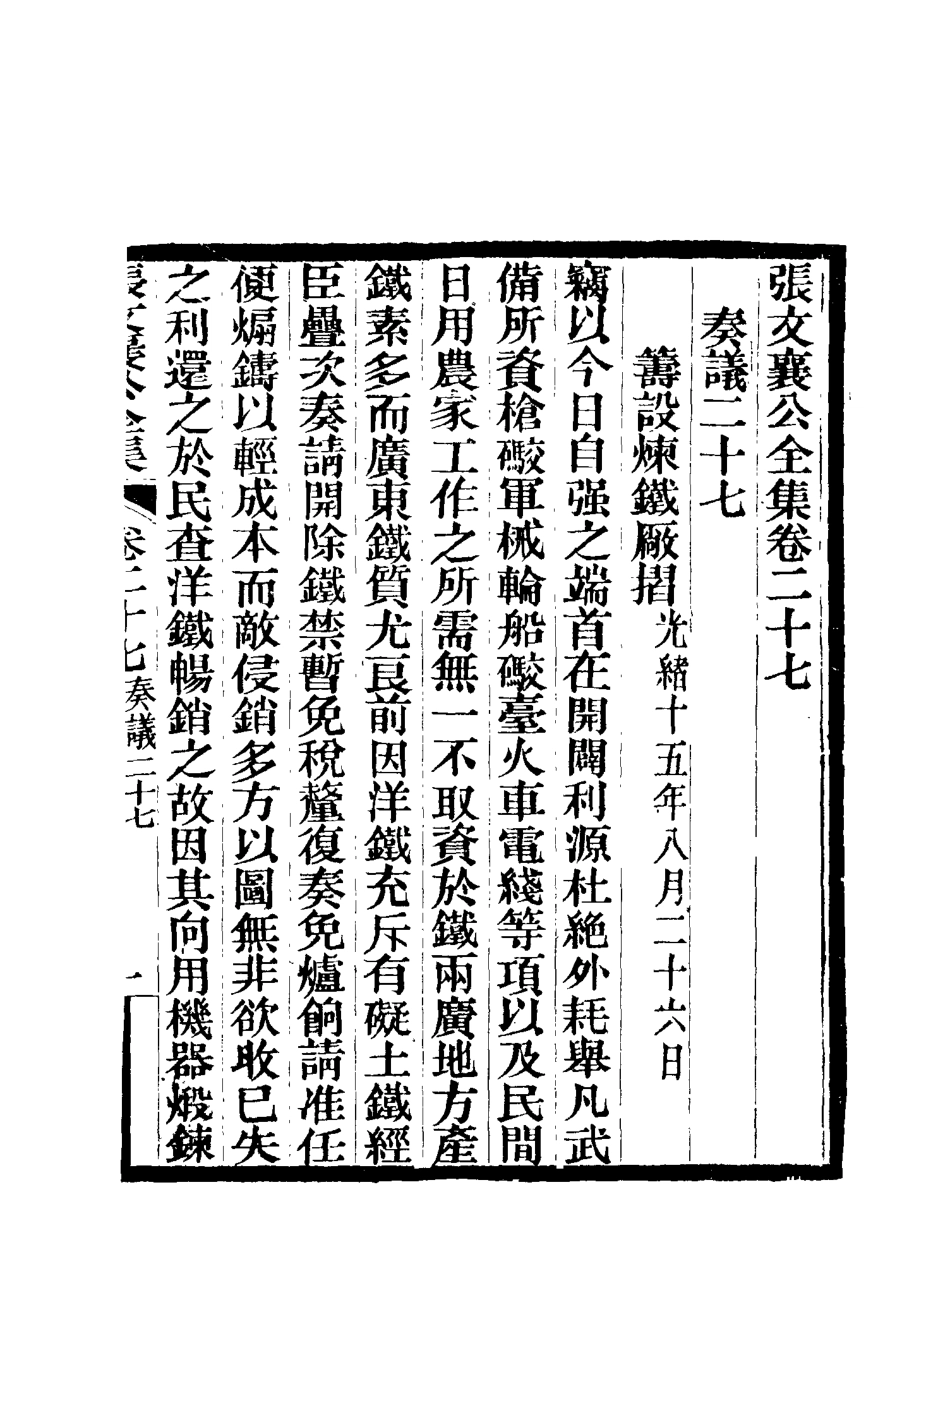 張文襄公全集卷二十七
奏議二十七
籌設煉鐵厰摺光緒十五年八月二十六日
竊以今日自强之端首在開闢利源杜絕外耗舉凡武
備所資槍礮軍械輪船礮臺火車電綫等項以及民間
日用農家工作之所需無一不取資於鐵兩廣地方產
鐵素多而廣東鐵質尤良前因洋鐵充斥有礙土鐵經
臣疊次奏請開除鐵禁暫免稅釐復奏免爐餉請准任
便煽鑄以輕成本而敵侵銷多方以圖無非欲收已失
之利還之於民查洋鐵暢銷之故因其向用機器煅鍊
張文襄公全集 卷二十七奏議二十七 一